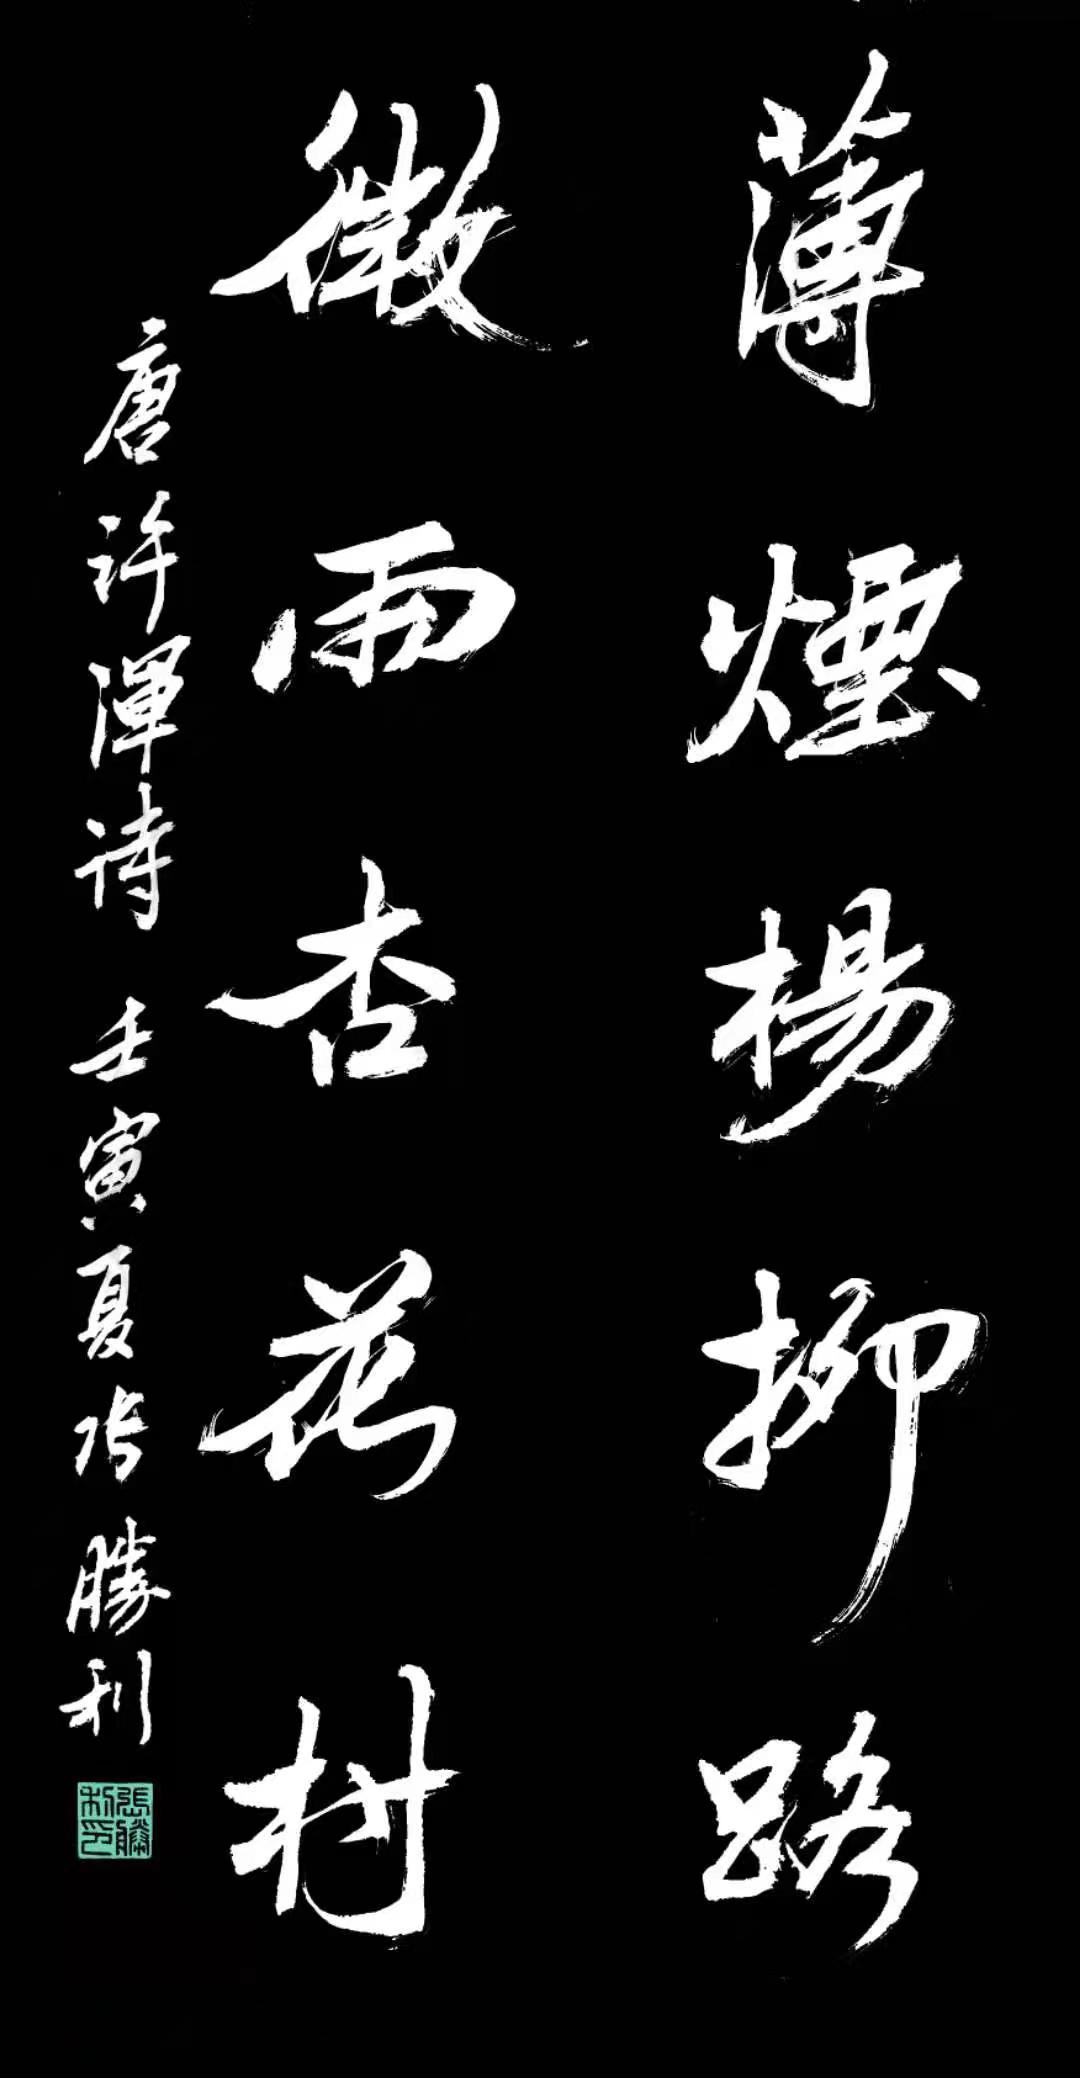 薄煙楊柳路
微雨杏花村
唐許渾詩 壬寅夏张勝利
張勝利印